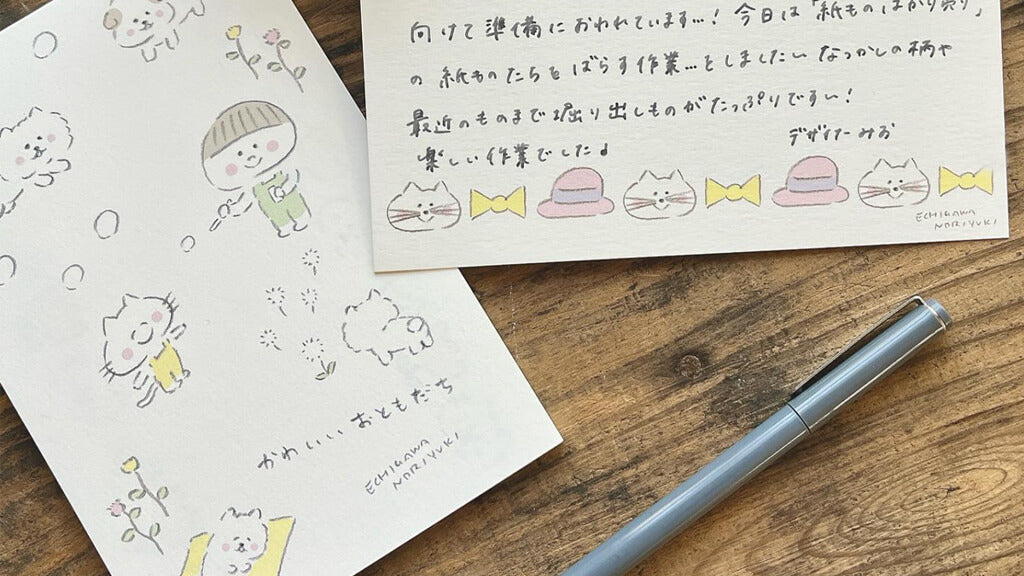 向けて準備におわれています…！今日は「紙ものばかり売り」
の紙ものたちをばらす作業…をしました！なつかしの柄や
最近のものまで掘り出しものがたっぷりです！
楽しい作業でした♪
デザイナーみお
ECHIGAWA
NORIYUKI
かわいいおともだち
ECHIGAWA
NORIYUKI